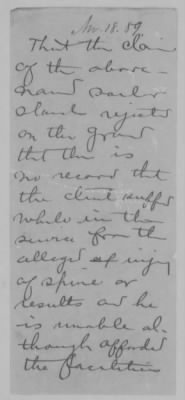 Nov. 18. 89
That the claim
of the above-
named sailor
stands rejected
on the ground
that there is
no record that
the clmt suffd
while in the
service from the
alleged injury
of spine or
results and he
is unable al-
though afforded
the facilities